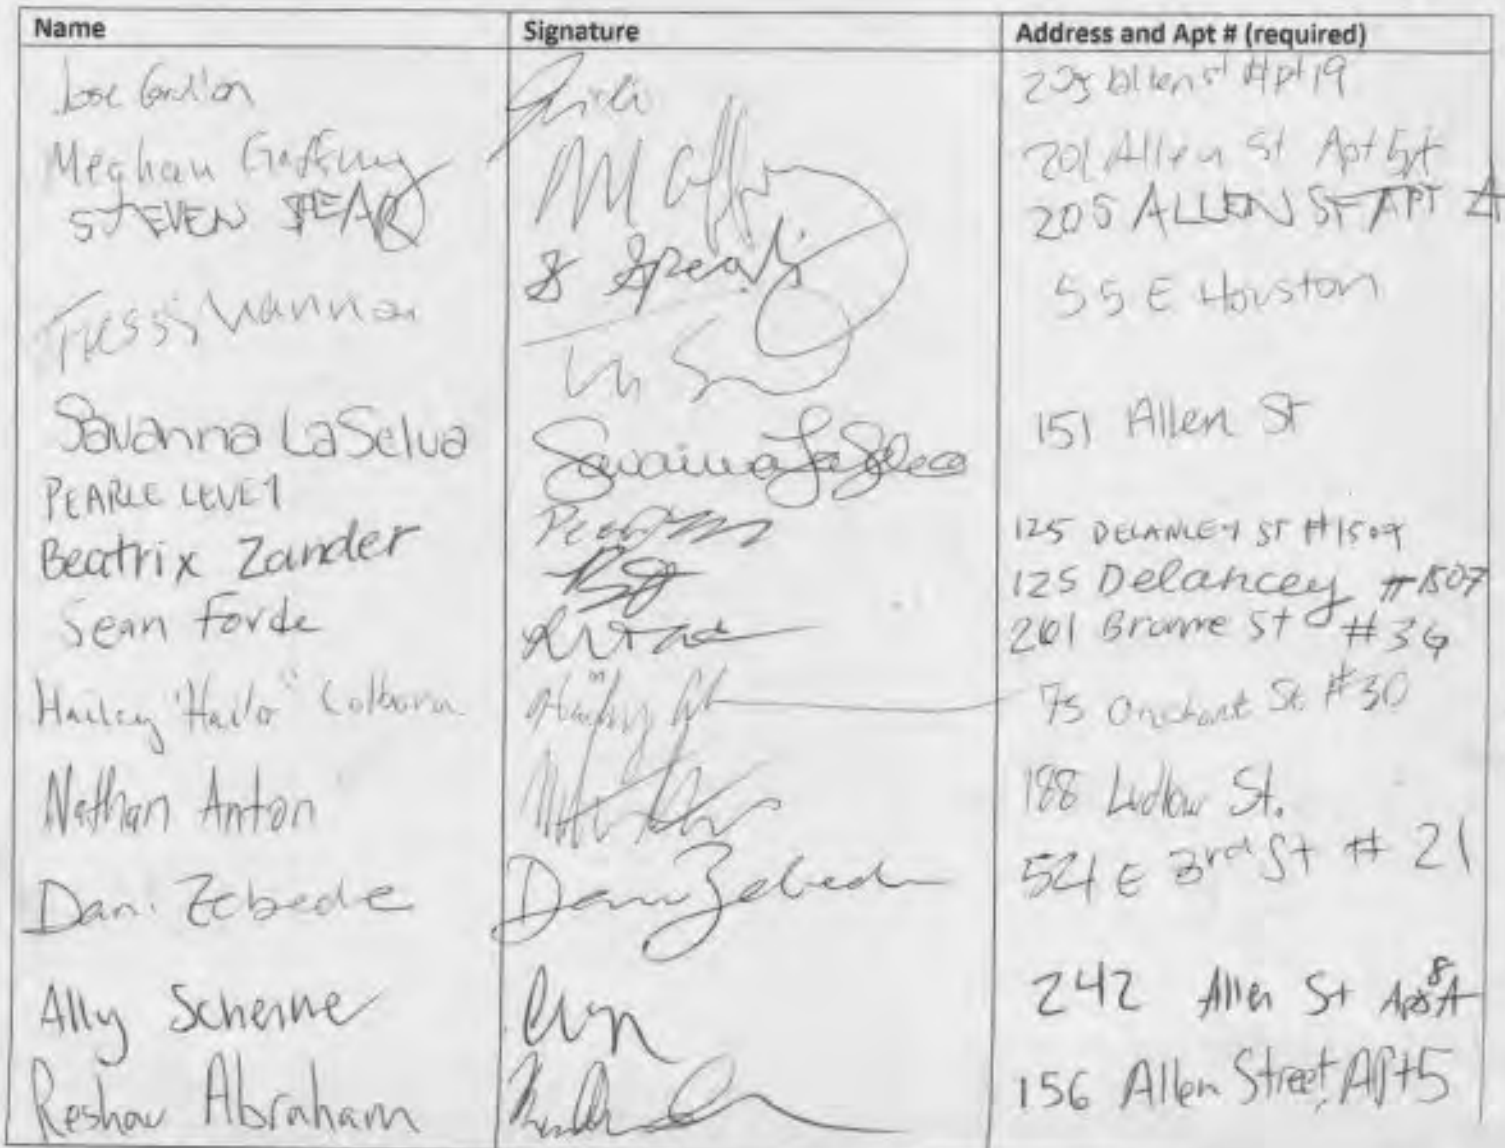 Name Signature Address and Apt # (required)
Jose 205 Allen st Apt 19
Meghan Gaffney M Gaffney 201 Allen St Apt
STEVEN SPEAR S Spear 205 ALLEN ST APT
55 E Houston
Savanna LaSelva Savanna LaSelva 151 Allen St
PEARLE LEVEY 125 DELANCEY ST #1507
Beatrix Zander BZ 125 Delancey #1507
Sean Forde 261 Broome St #3G
Hailey "Hailo" Colborn Hailey 75 Orchard St. #30
Nathan Anton 188 Ludlow St.
Dani Zebede Dani Zebede 521 E 3rd St # 21
Ally Scheine 242 Allen St Apt 8A
Abraham 156 Allen Street, Apt 5